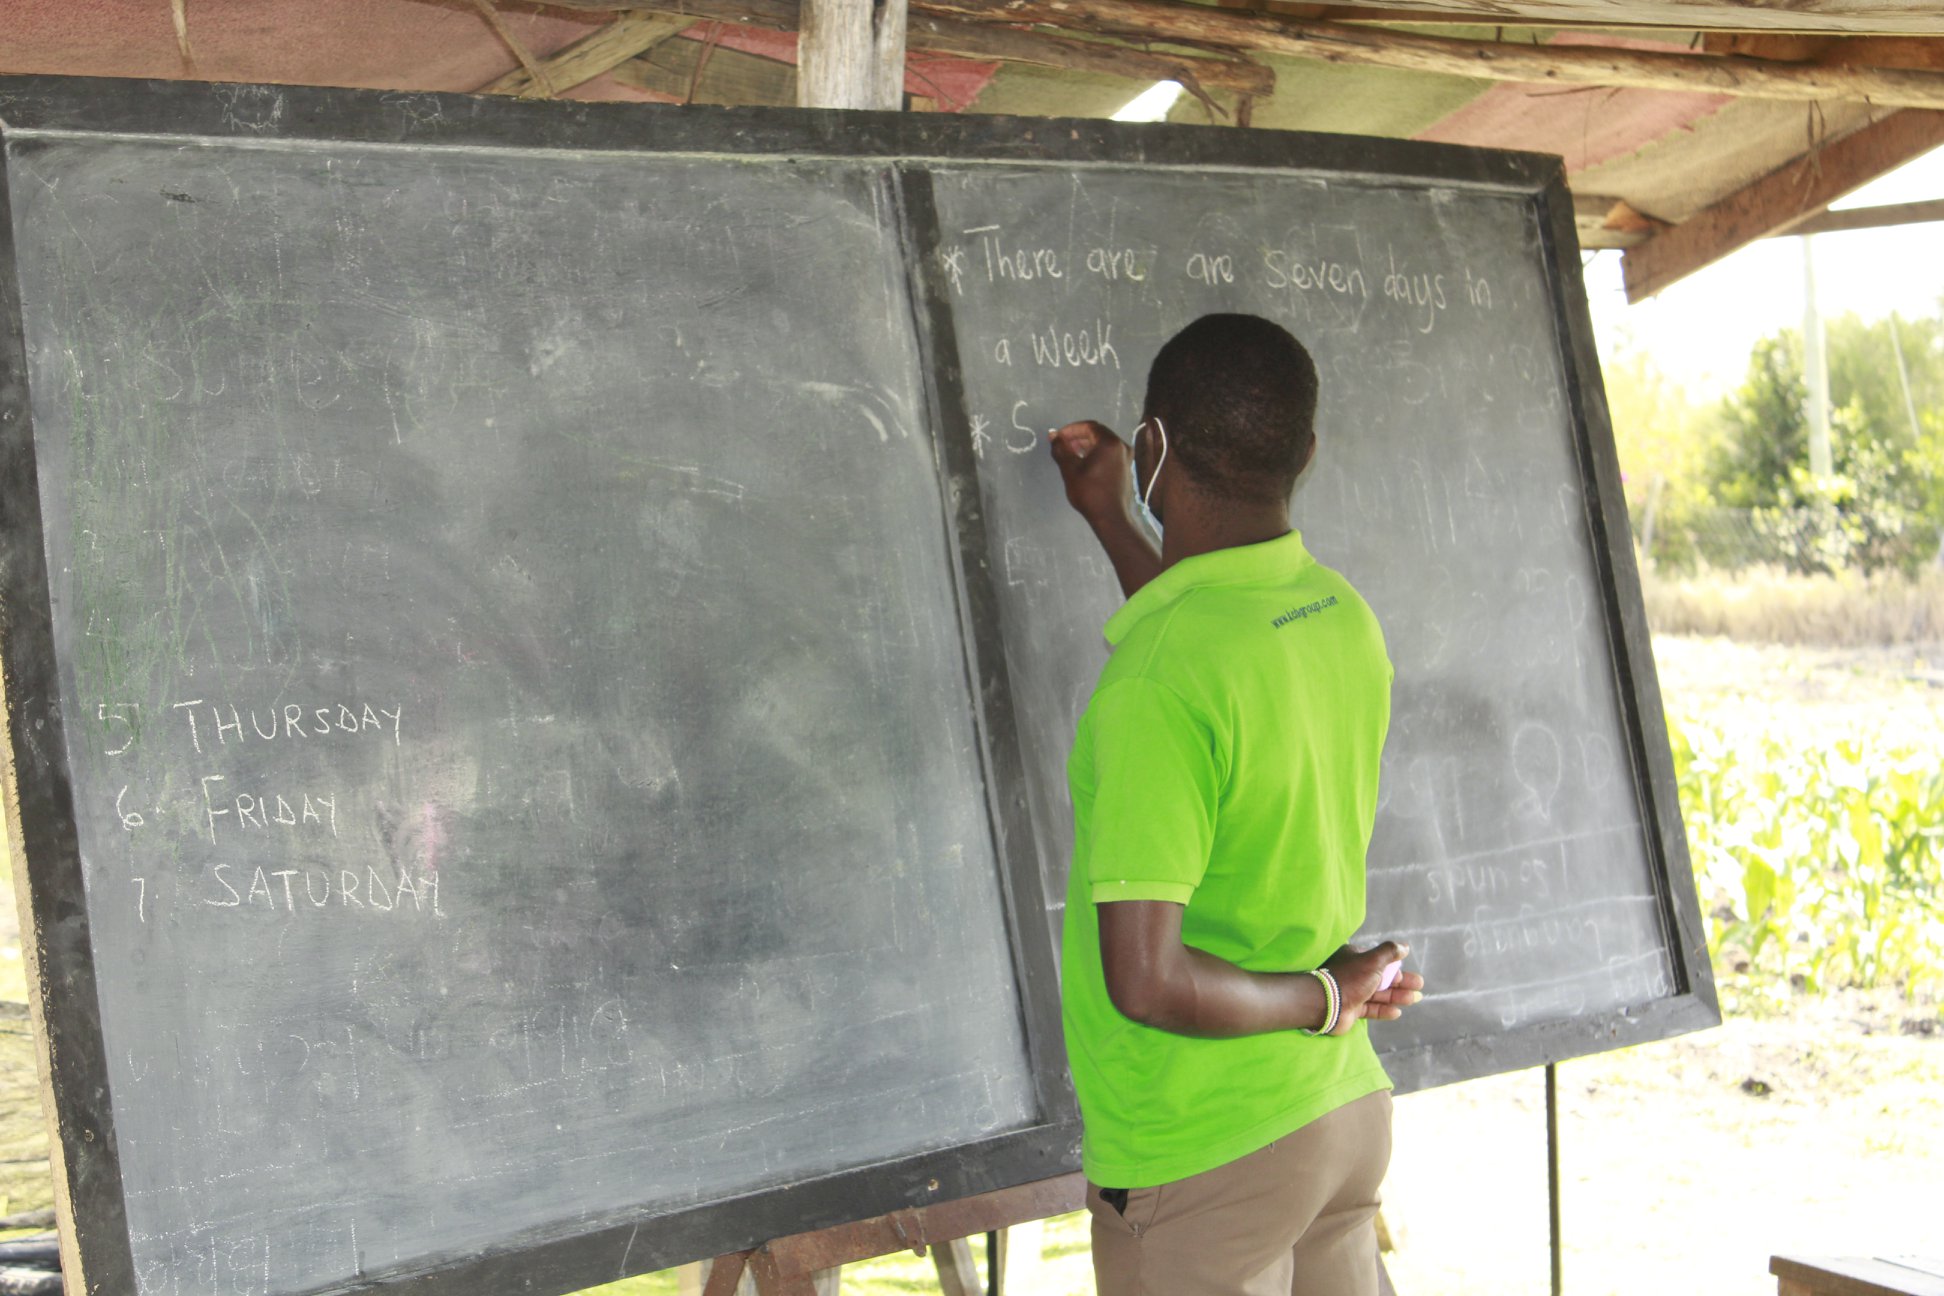 5 THURSDAY
6. FRIDAY
7. SATURDAY
* There are are seven days in
a week
* S
www.kcbgroup.com